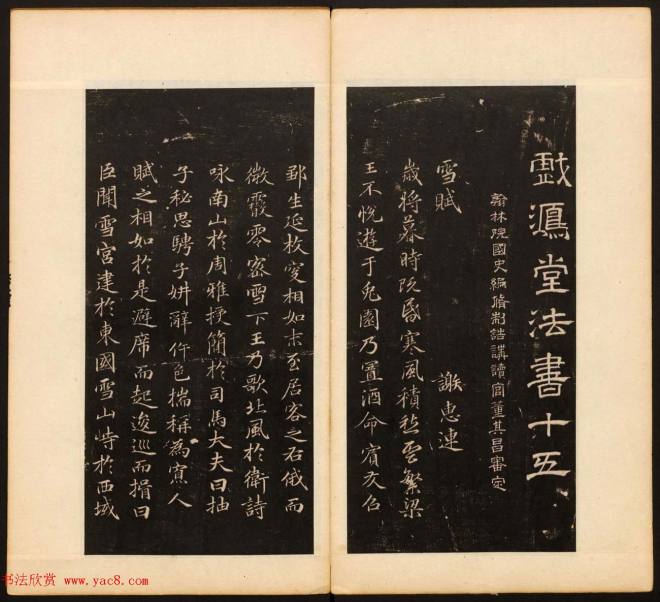 戲鴻堂法書十五
翰林院國史編脩制誥講讀官董其昌審定
雪賦 謝惠連
歲將暮時既昏寒風積愁雲繁梁
王不悅遊于兔園乃置酒命賓友召
鄒生延枚叟相如末至居客之右俄而
微霰零密雪下王乃歌北風於衛詩
咏南山於周雅授簡於司馬大夫曰抽
子秘思騁子妍辭侔色揣稱為寡人
賦之相如於是避席而起逡巡而揖曰
臣聞雪宮建於東國雪山峙於西域
书法欣赏 www.yac8.com